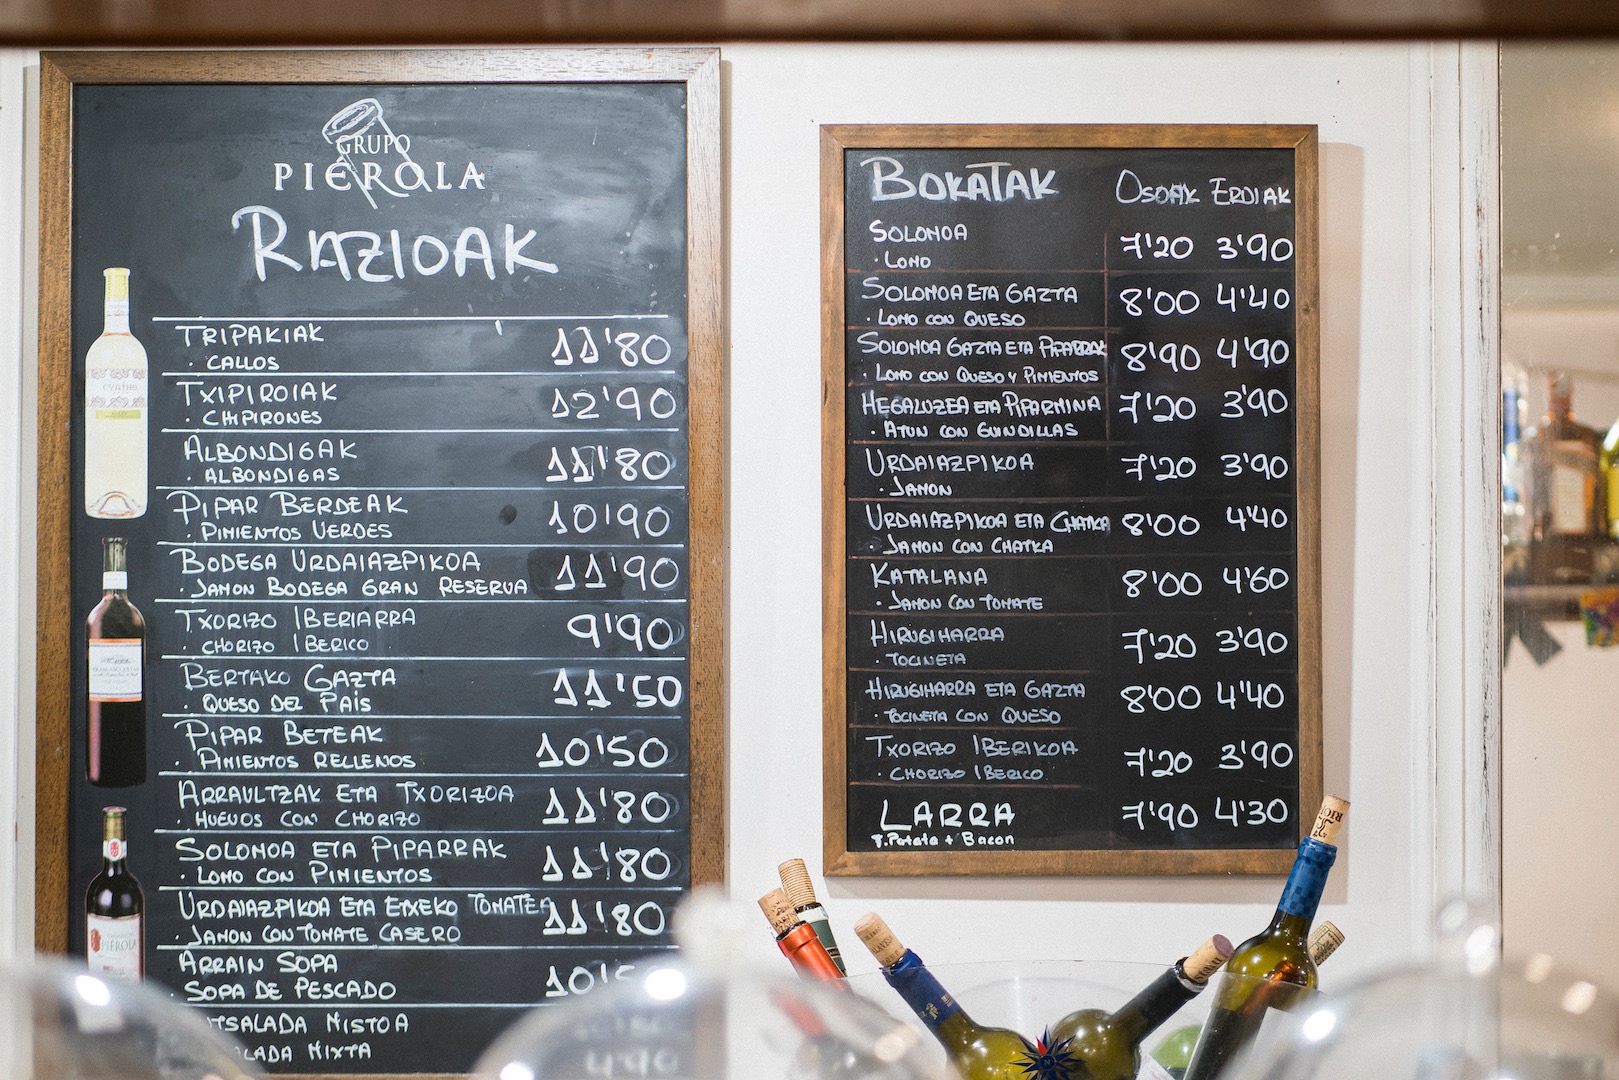 GRUPO
PIEROLA
RAZIOAK
TRIPAKIAK 11'80
· CALLOS
TXIPIROIAK 12'90
· CHIPIRONES
ALBONDIGAK 11'80
· ALBONDIGAS
PIPAR BERDEAK 10'90
· PIMIENTOS VERDES
BODEGA URDAIAZPIKOA 11'90
· JAMON BODEGA GRAN RESERVA
TXORIZO IBERIARRA 9'90
· CHORIZO IBERICO
BERTAKO GAZTA 11'50
· QUESO DEL PAÍS
PIPAR BETEAK 10'50
· PIMIENTOS RELLENOS
ARRAULTZAK ETA TXORIZOA 11'80
· HUEVOS CON CHORIZO
SOLOMOA ETA PIPARRAK 11'80
· LOMO CON PIMIENTOS
URDAIAZPIKOA ETA ETXEKO TOMATEA 11'80
· JAMON CON TOMATE CASERO
ARRAIN SOPA
· SOPA DE PESCADO
MISTOA
MIXTA
4'90
BOKATAK OSOAK ERDIAK
SOLOMOA 7'20 3'90
· LOMO
SOLOMOA ETA GAZTA 8'00 4'40
· LOMO CON QUESO
SOLOMOA GAZTA ETA PIPARRAK 8'90 4'90
· LOMO CON QUESO Y PIMIENTOS
HEGALUZEA ETA PIPARMINA 7'20 3'90
· ATUN CON GUINDILLAS
URDAIAZPIKOA 7'20 3'90
· JAMON
URDAIAZPIKOA ETA CHATKA 8'00 4'40
· JAMON CON CHATKA
KATALANA 8'00 4'60
· JAMON CON TOMATE
HIRUGIHARRA 7'20 3'90
· TOCINETA
HIRUGIHARRA ETA GAZTA 8'00 4'40
· TOCINETA CON QUESO
TXORIZO IBERIKOA 7'20 3'90
· CHORIZO IBERICO
LARRA 7'90 4'30
T.Patata + Bacon
PIÉROLA
RIOJA